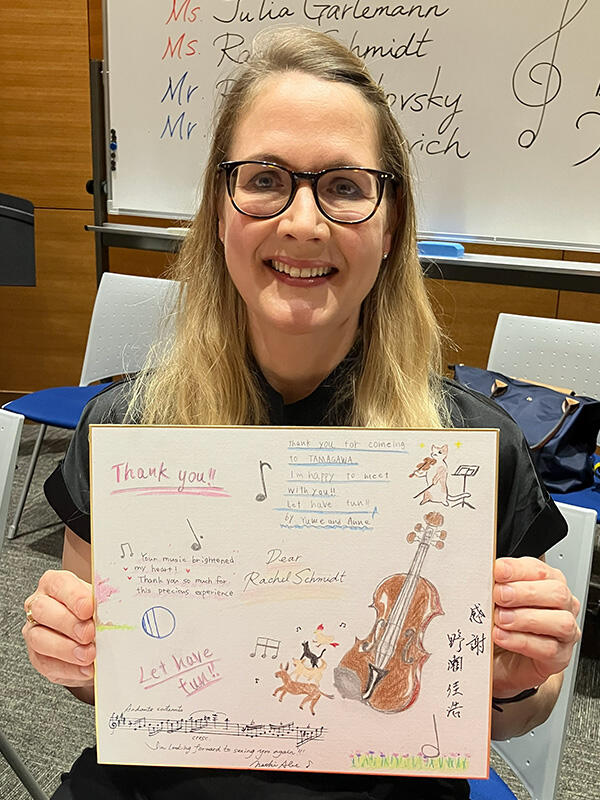 Ms. Julia Garlemann
Ms. Ra Schmidt
Mr.
ovsky
Mr.
rich
Thank you!!
Thank you for comeing
to TAMAGAWA
I'm happy to meet
with you!!
Let have fun!!
by Yuwe and Anne
Your music brightened
my heart!
Thank you so much for
this precious experience
Dear
Rachel Schmidt
Let have
fun!!
感謝
野瀬佳浩
Andante cantante
cresc
I'm looking forward to seeing you again!!!